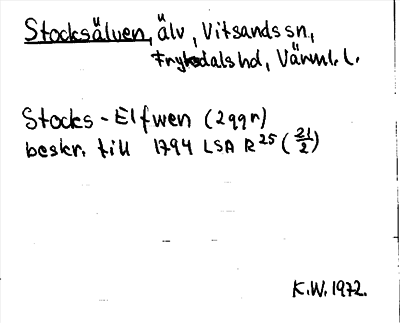 Stocksälven, älv, Vitsands sn,
Fryksdals hd, Värml. l.
Stocks-Elfwen (2 ggr)
beskr. till 1794 LSA R 25 (21/2)
K.W. 1972.